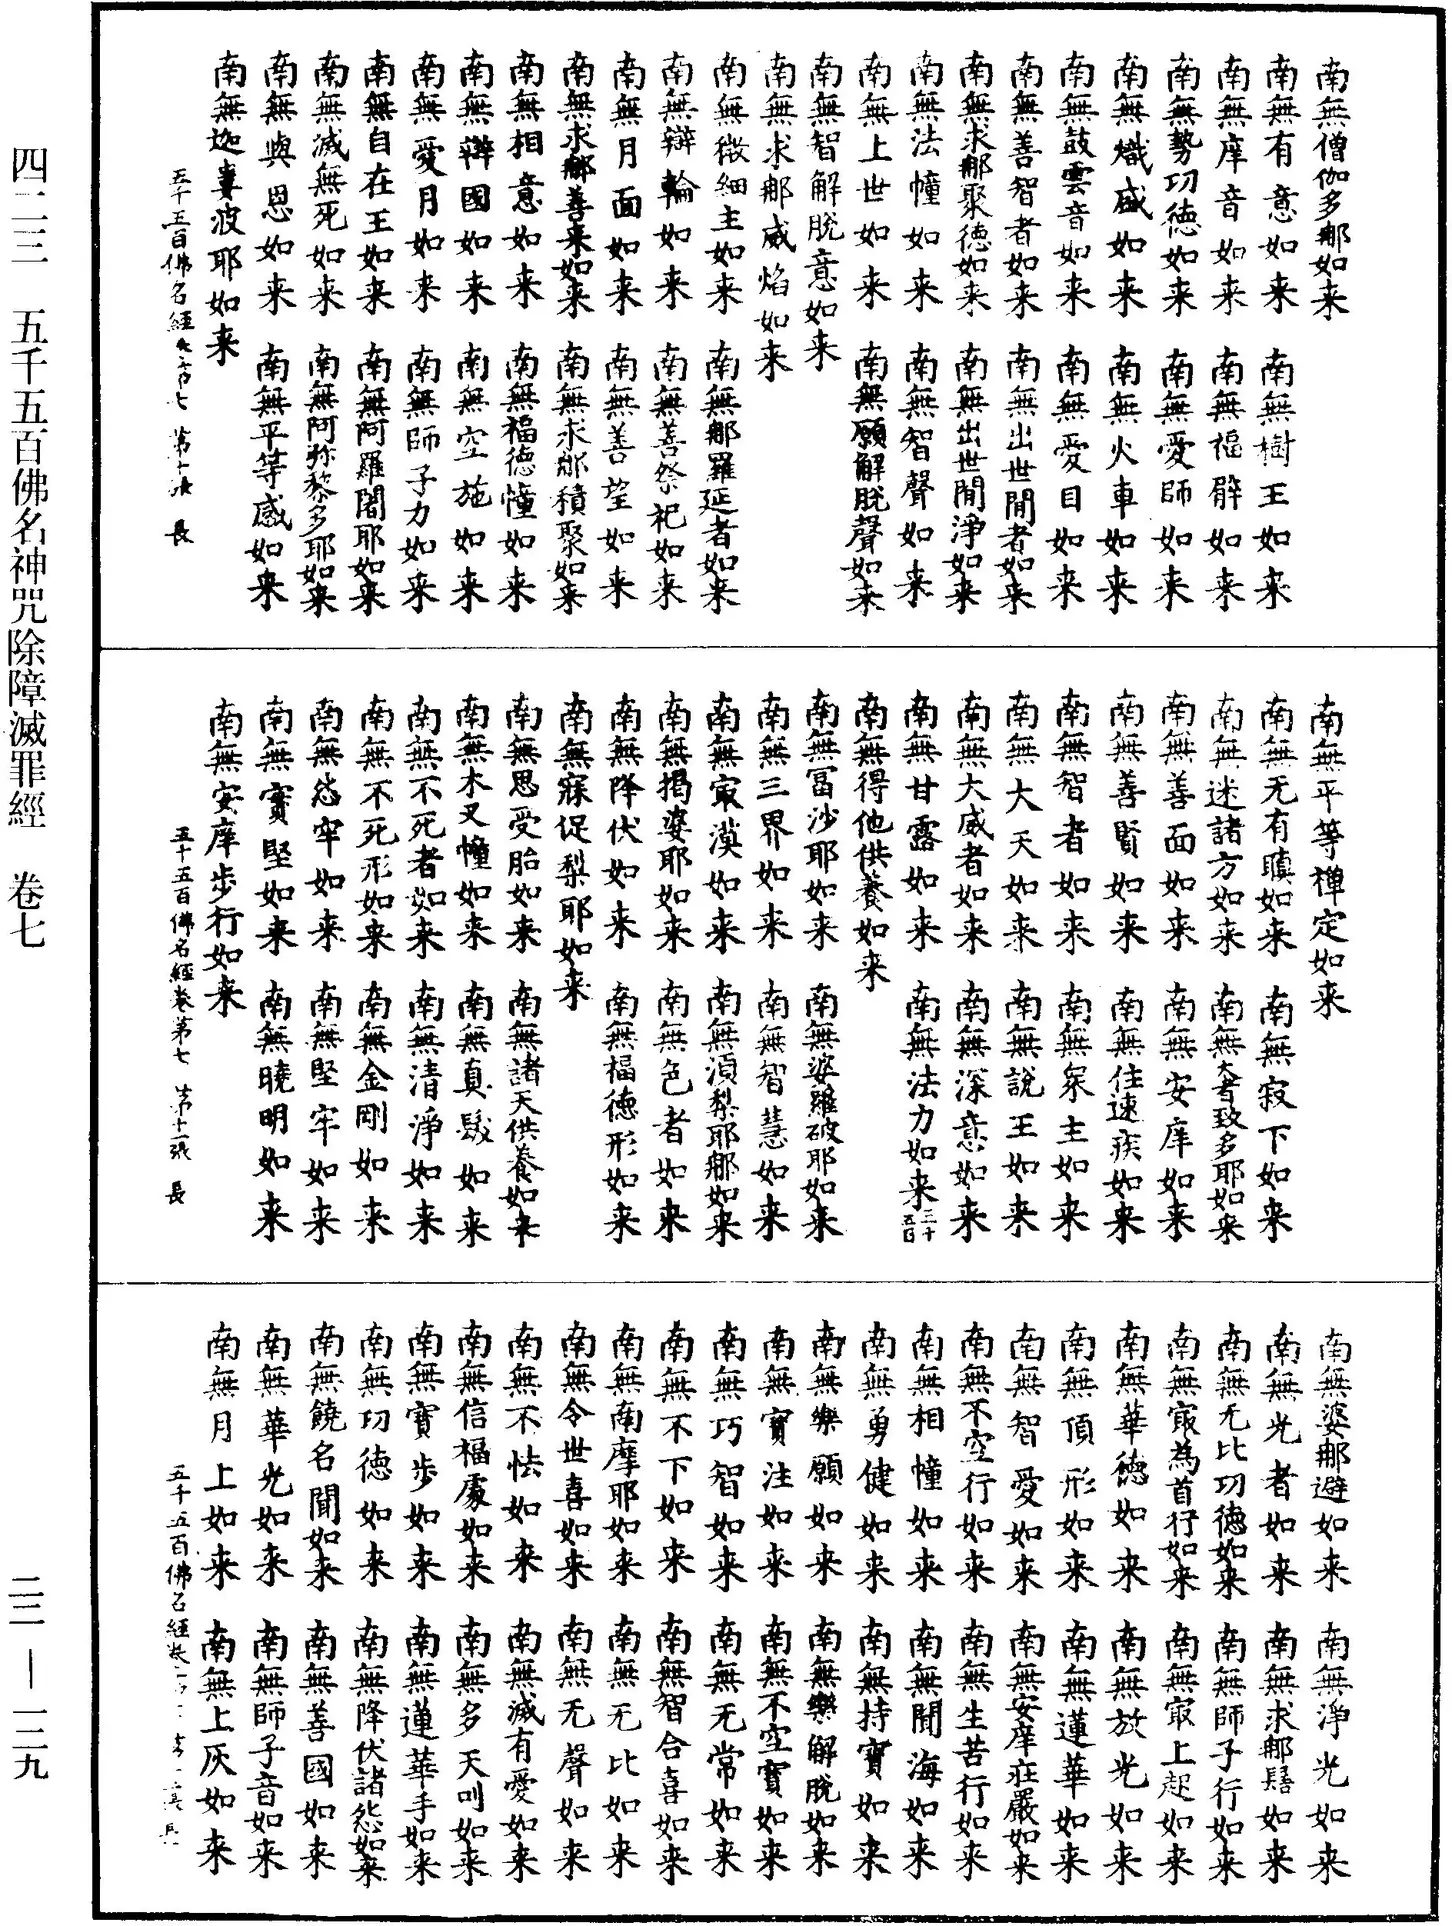 南無僧伽多那如来
南無有意如来　南無樹王如来
南無摩音如来　南無福辟如来
南無勢功德如来　南無愛師如来
南無熾盛如来　南無火車如来
南無鼓雲音如来　南無愛目如来
南無善智者如来　南無出世間者如来
南無求那聚德如来　南無出世間淨如来
南無法幢如来　南無智聲如来
南無上世如来　南無願解脫聲如来
南無智解脫意如来
南無求那威焰如来
南無微細主如来　南無那羅延者如来
南無辯輪如来　南無善祭祀如来
南無月面如来　南無善望如来
南無求那善来如来　南無求那積聚如来
南無相意如来　南無福德憧如来
南無辯國如来　南無空施如来
南無愛月如来　南無師子力如来
南無自在王如来　南無阿羅闍耶如来
南無滅無死如来　南無阿弥黎多耶如来
南無與恩如来　南無平等感如来
南無迦婁波耶如来
五千五百佛名經　第七　第十張　長
南無平等禪定如来
南無无有瞋如来　南無寂下如来
南無迷諸方如来　南無大者致多耶如来
南無善面如来　南無安庠如来
南無善賢如来　南無住速疾如来
南無智者如来　南無衆主如来
南無大天如来　南無說王如来
南無大威者如来　南無深意如来
南無甘露如来　南無法力如来三千五百
南無得他供養如来
南無冨沙耶如来　南無婆羅破耶如来
南無三界如来　南無智慧如来
南無㝡漠如来　南無湏梨耶那如来
南無揭婆耶如来　南無色者如来
南無降伏如来　南無福德形如来
南無寐促梨耶如来
南無思受胎如来　南無諸天供養如来
南無木叉幢如来　南無真髮如来
南無不死者如来　南無清淨如来
南無不死形如来　南無金剛如来
南無怨牢如来　南無堅牢如来
南無寶堅如来　南無曉明如来
南無安庠步行如来
五千五百佛名經卷第七　第十一張　長
南無婆那避如来　南無淨光如来
南無光者如来　南無求那髻如来
南無无比功德如来　南無師子行如来
南無㝡為首行如来　南無㝡上起如来
南無華德如来　南無放光如来
南無頂形如来　南無蓮華如来
南無智愛如来　南無安庠莊嚴如来
南無不空行如来　南無生苦行如来
南無相幢如来　南無聞海如来
南無勇健如来　南無持寶如来
南無樂願如来　南無樂解脫如来
南無寶注如来　南無不空寶如来
南無巧智如来　南無无常如来
南無不下如来　南無智合喜如来
南無南摩耶如来　南無无比如来
南無令世喜如来　南無无聲如来
南無不怯如来　南無滅有愛如来
南無信福處如来　南無多天叫如来
南無寶步如来　南無蓮華手如来
南無功德如来　南無降伏諸怨如来
南無饒名聞如来　南無善國如来
南無華光如来　南無師子音如来
南無月上如来　南無上灰如来
五千五百佛名經
四二三　五千五百佛名神咒除障滅罪經　卷七　二二—一二九